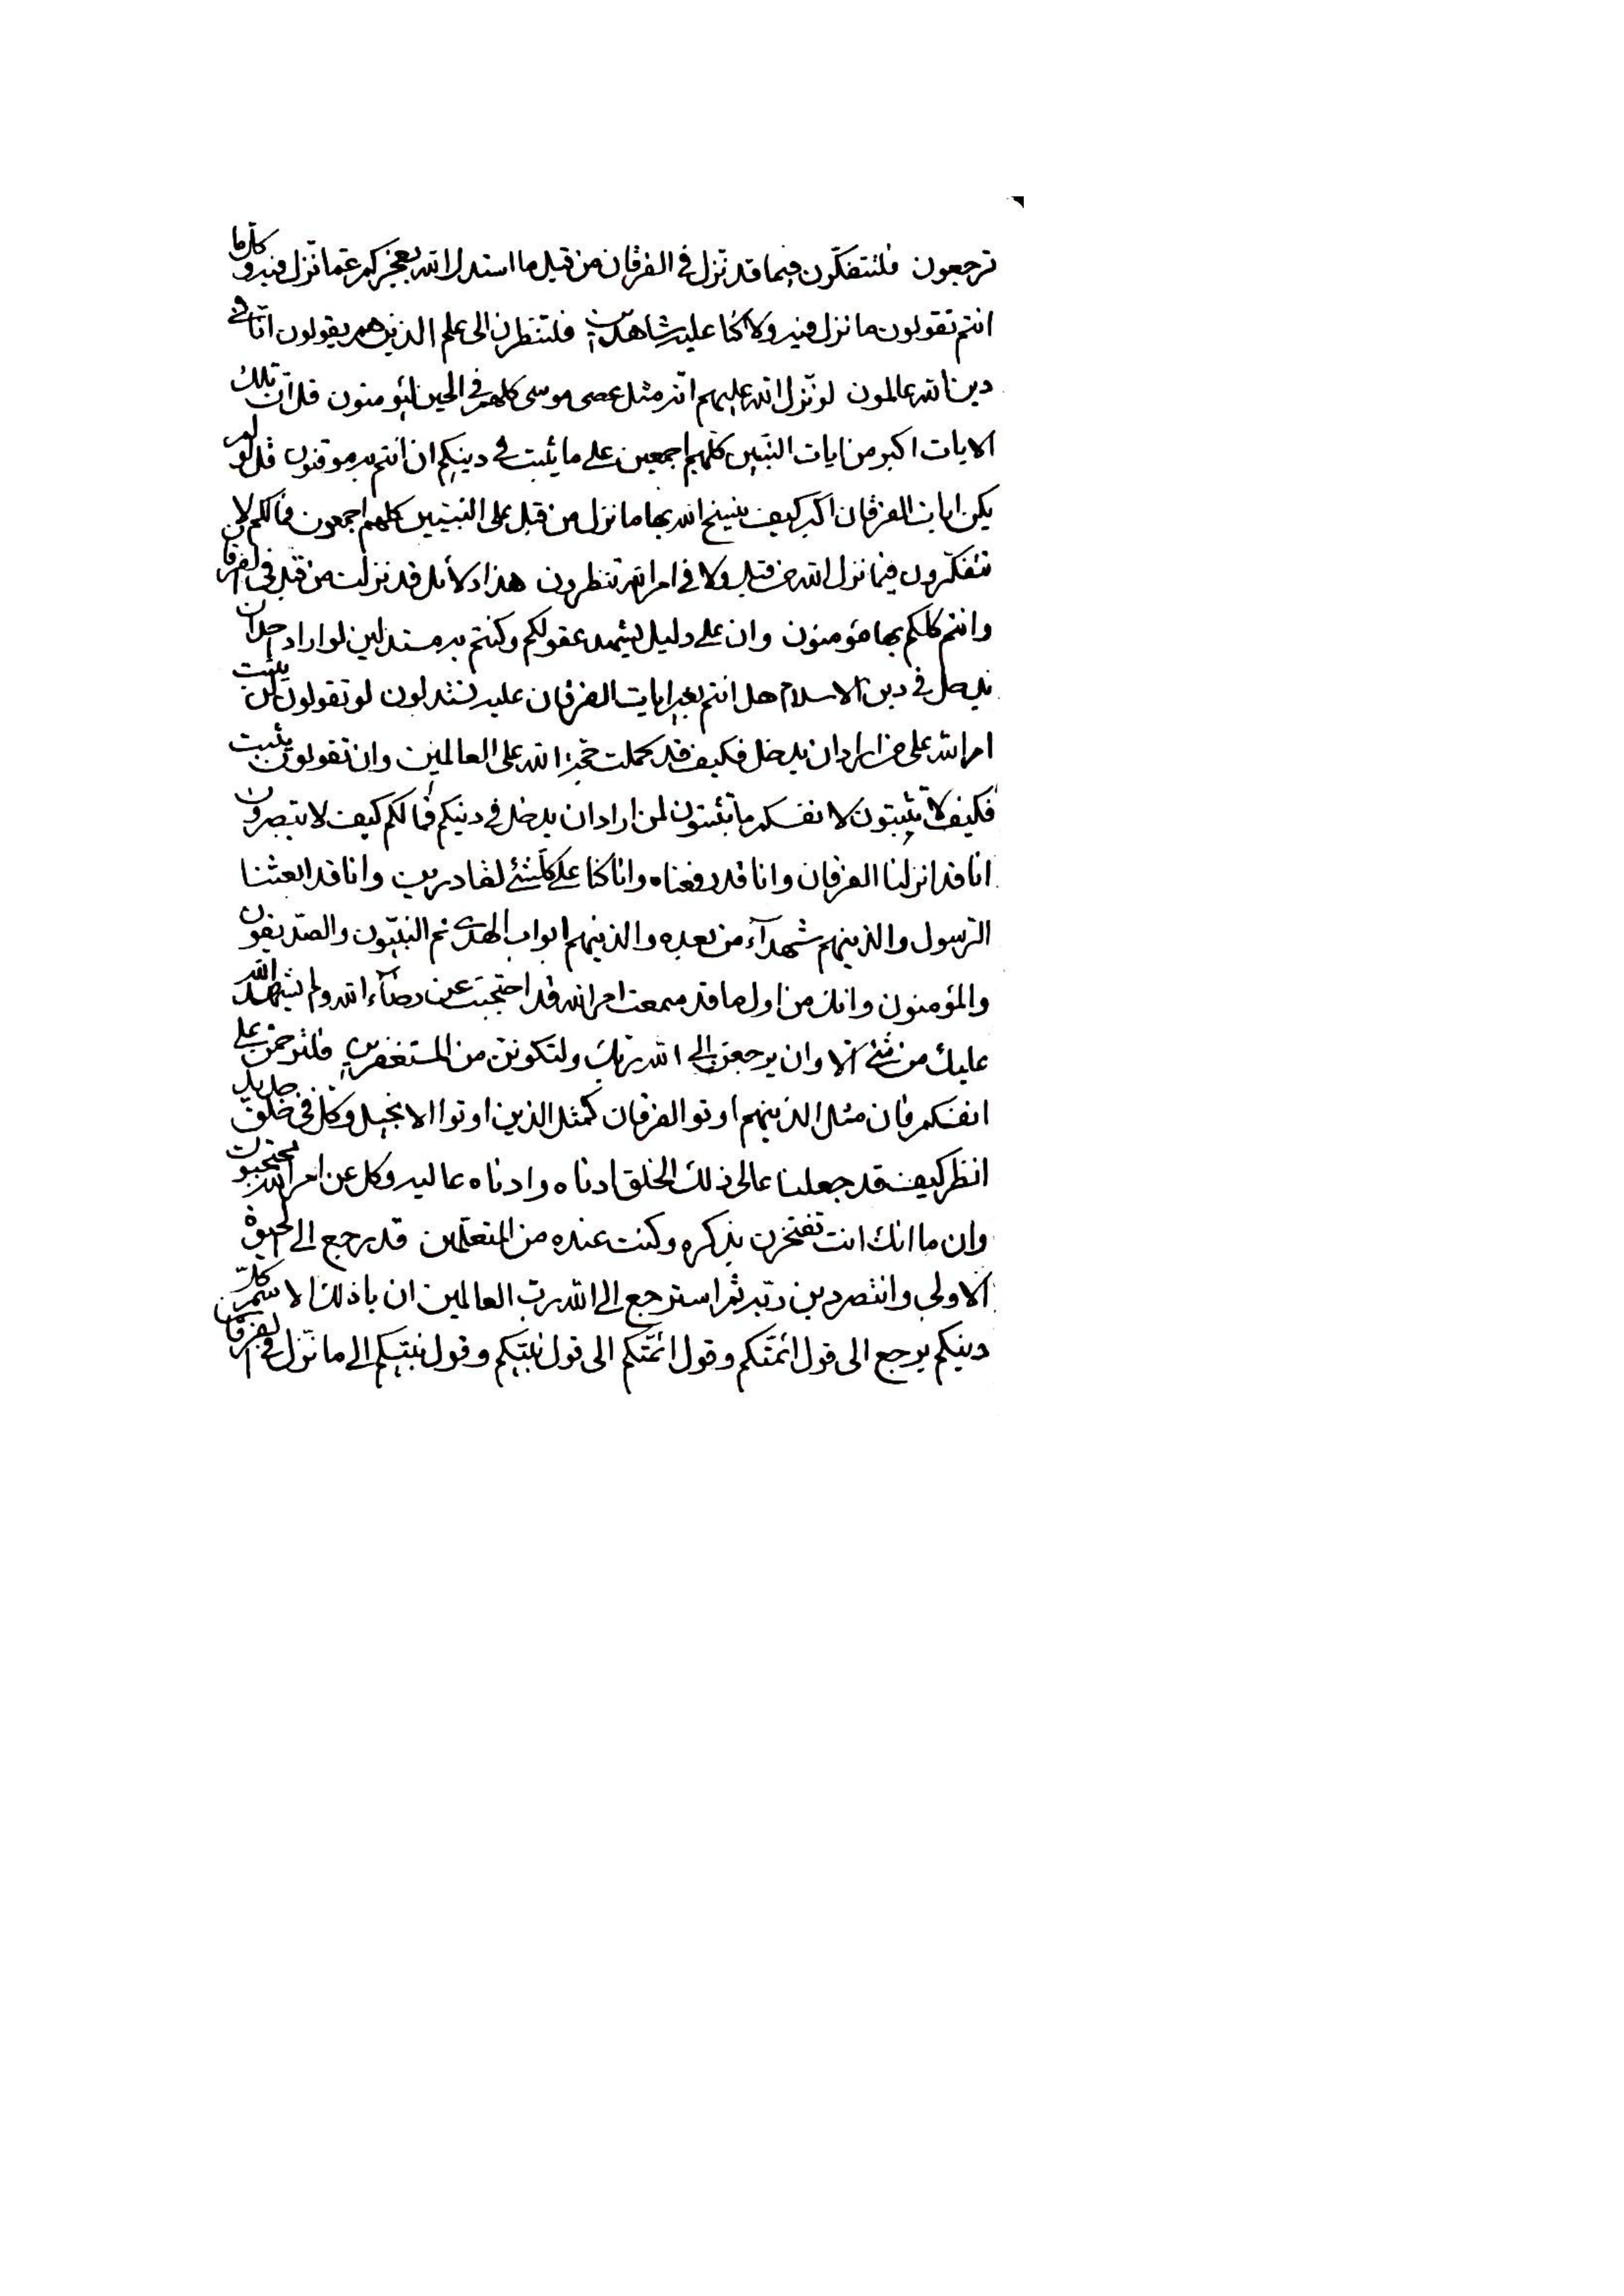 ترجعون فلتتفكّرون فيما قد نزّل في الفرقان من قبل ما استدل الله بعجزكم عمّا نزّل فيه وكلّما
انتم تقولون ما نزل فيه ولا كنا عليه شاهدين فلتنظرن الى علم الذينهم يقولون انّا في
دين الله عالمون لو نزّل الله عليهم اثر مثل عصى موسى كلهم في الحين ليؤمنون قل ان تلك
الايات اكبر من ايات النبيّن كلّهم اجمعين على ما يثبت في دينكم ان انتم به موقنون قل لو لم
يكن ايات الفرقان اكبر كيف ينسخ الله بها ما نزل من قبل على النبيّين كلهم اجمعون فمالكم لا
تتفكّرون فيما نزل الله من قبل ولا في امر الله تنظرون هذا دلائل قد نزلت من قبل في الفرقان
وانتم كلكم بها مؤمنون وان على دليل ليشهد عقولكم وكنتم به مستدلين لو اراد احد ان
يدخل في دين الاسلام هل انتم بغير ايات الفرقان عليه تستدلون لو تقولون لن يثبت
امر الله على من اراد ان يدخل فكيف قد كملت حجة الله على العالمين وان تقولون يثبت
فكيف لا تثبتون لانفسكم ما تثبتون لمن اراد ان يدخل في دينكم فمالكم كيف لا تبصرون
انا قد انزلنا الفرقان وانا قد رفعناه وانا كنا على كلشئ لقادرين وانا قد ابعثنا
الرسول والذينهم شهدآء من بعده والذينهم ابواب الهدى ثم النبيّون والصدّيقون
والمؤمنون وانك من اول ما قد سمعت امر الله قد احتجبت عن رضآء الله ولم يشهد الله
عليك من شئ الا وان يرجعن الى الله ربك ولتكونن من المستغفرين فلترحمن على
انفسكم فان مثل الذينهم اوتوا الفرقان كمثل الذين اوتوا الانجيل وكل في خلق جديد
انظر كيف قد جعلنا عالى ذلك الخلق ادناه وادناه عاليه وكل عن امر الله محتجبون
وان ما انك انت تفتخرن بذكره وكنت عنده من المتعلمين قد رجع الى الحيوة
الاولى وانتصر دين ربه ثم استرجع الى الله رب العالمين ان باذلك الاسم كلّ
دينكم يرجع الى قول ائمّتكم وقول ائمّتكم الى قول نبيّكم وقول نبيّكم الى ما نزّل في الفرقان